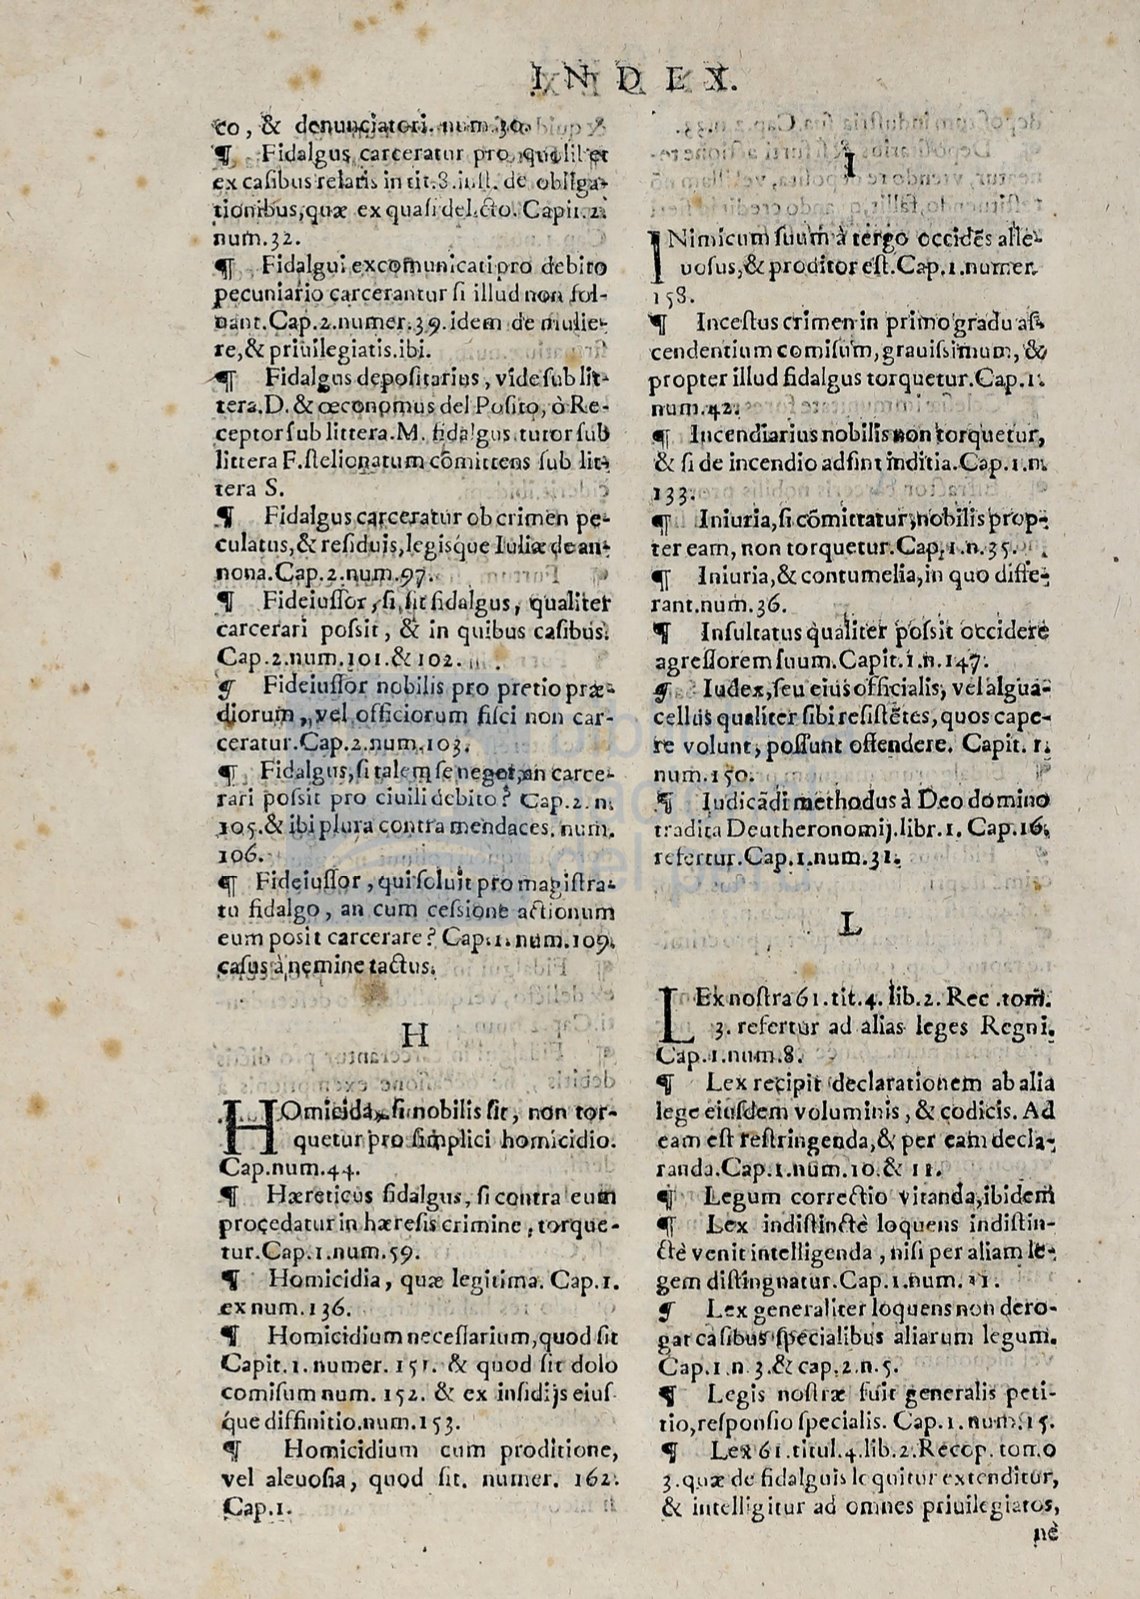 INDEX.
co, & denunciatori. num.30.
¶ Fidalgus carceratur pro quolibet
ex casibus relatis in tit.8.iuſl. de obliga-
tionibus, quæ ex quaſi delicto. Capit.2.
num.32.
¶ Fidalgui excomunicati pro debito
pecuniario carcerantur ſi illud non ſol-
uant.Cap.2.numer.39.idem de mulie-
re,& priuilegiatis.ibi.
¶ Fidalgus depoſitarius, vide ſub lit-
tera.D. & œconomus del Poſito, ò Re-
ceptor ſub littera.M. fidalgus tutor ſub
littera F.ſtelionatum cõmittens ſub lit-
tera S.
¶ Fidalgus carceratur ob crimen pe-
culatus,& reſiduis,legisque Iuliæ de an-
nona.Cap.2.num.97.
¶ Fideiuſſor, ſi ſit fidalgus, qualiter
carcerari poſsit, & in quibus caſibus.
Cap.2.num.101.& 102.
¶ Fideiuſſor nobilis pro pretio præ-
diorum, vel officiorum fiſci non car-
ceratur.Cap.2.num.103.
¶ Fidalgus, ſi talem ſe neget, an carce-
rari poſsit pro ciuili debito? Cap.2.n.
105.& ibi plura contra mendaces. num.
106.
¶ Fideiuſſor, qui ſoluit pro magiſtra-
tu fidalgo, an cum ceſsione actionum
eum posit carcerare? Cap.1.num.109.
caſus à nemine tactus.
H
HOmicida, ſi nobilis ſit, non tor-
quetur pro ſimplici homicidio.
Cap.num.44.
¶ Hæreticus fidalgus, ſi contra eum
procedatur in hæreſis crimine, torque-
tur.Cap.1.num.59.
¶ Homicidia, quæ legitima. Cap.1.
ex num.136.
¶ Homicidium neceſſarium, quod ſit
Capit.1. numer.151. & quod ſit dolo
comiſum num. 152. & ex inſidijs eiuſ
que diffinitio.num.153.
¶ Homicidium cum proditione,
vel aleuoſia, quod ſit. numer. 162.
Cap.1.
I
INimicum ſuum à tergo occidẽs alle-
uoſus,& proditor eſt.Cap.1.numer.
158.
¶ Inceſtus crimen in primo gradu aſ-
cendentium comiſum, grauiſsimum, &
propter illud fidalgus torquetur.Cap.1.
num.42.
¶ Incendiarius nobilis non torquetur,
& ſi de incendio adſint inditia.Cap.1.n.
133.
¶ Iniuria, ſi cõmittatur, nobilis prop-
ter eam, non torquetur.Cap.1.n.35.
¶ Iniuria,& contumelia, in quo diffe-
rant.num.36.
¶ Inſultatus qualiter poſsit occidere
agreſſorem ſuum.Capit.1.n.147.
¶ Iudex, ſeu eius officialis, vel algua-
cellus qualiter ſibi reſiſtẽtes, quos cape-
re volunt, poſſunt offendere. Capit. 1.
num.150.
¶ Iudicãdi methodus à Deo domino
tradita Deutheronomij.libr.1. Cap.16.
refertur.Cap.1.num.31.
L
LEx noſtra 61.tit.4. lib.2. Rec .tom.
3. refertur ad alias leges Regni.
Cap.1.num.8.
¶ Lex recipit declarationem ab alia
lege eiuſdem voluminis, & codicis. Ad
eam eſt reſtringenda,& per eam decla-
randa.Cap.1.num.10.& 11.
¶ Legum correctio vitanda,ibidem
¶ Lex indiſtinctè loquens indiſtin-
ctè venit intelligenda, niſi per aliam le-
gem diſtingnatur.Cap.1.num.11.
¶ Lex generaliter loquens non dero-
gat caſibus ſpecialibus aliarum legum.
Cap.1.n.3.& cap.2.n.5.
¶ Legis noſtræ fuit generalis peti-
tio, reſponſio ſpecialis. Cap.1.num.15.
¶ Lex 61.titul.4.lib.2.Recop. tomo
3.quæ de fidalguis loquitur extenditur,
& intelligitur ad omnes priuilegiatos,
nè